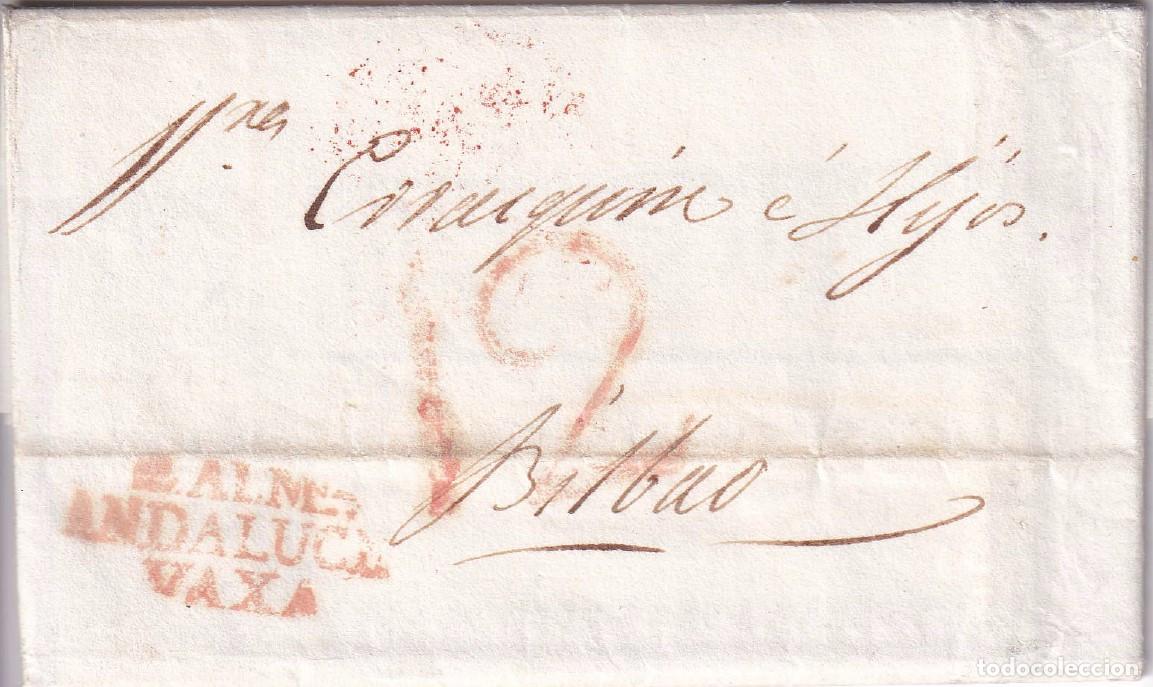 Sres Corraiquirri é Hijos.
12
Bilbao
ANDALUCIA
VAXA
todocoleccion